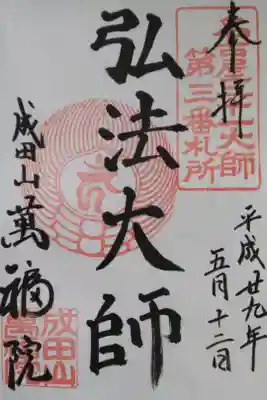 奉拝
第三番札所
平成廿九年
五月十二日
弘法大師
成田山萬福院
成田山